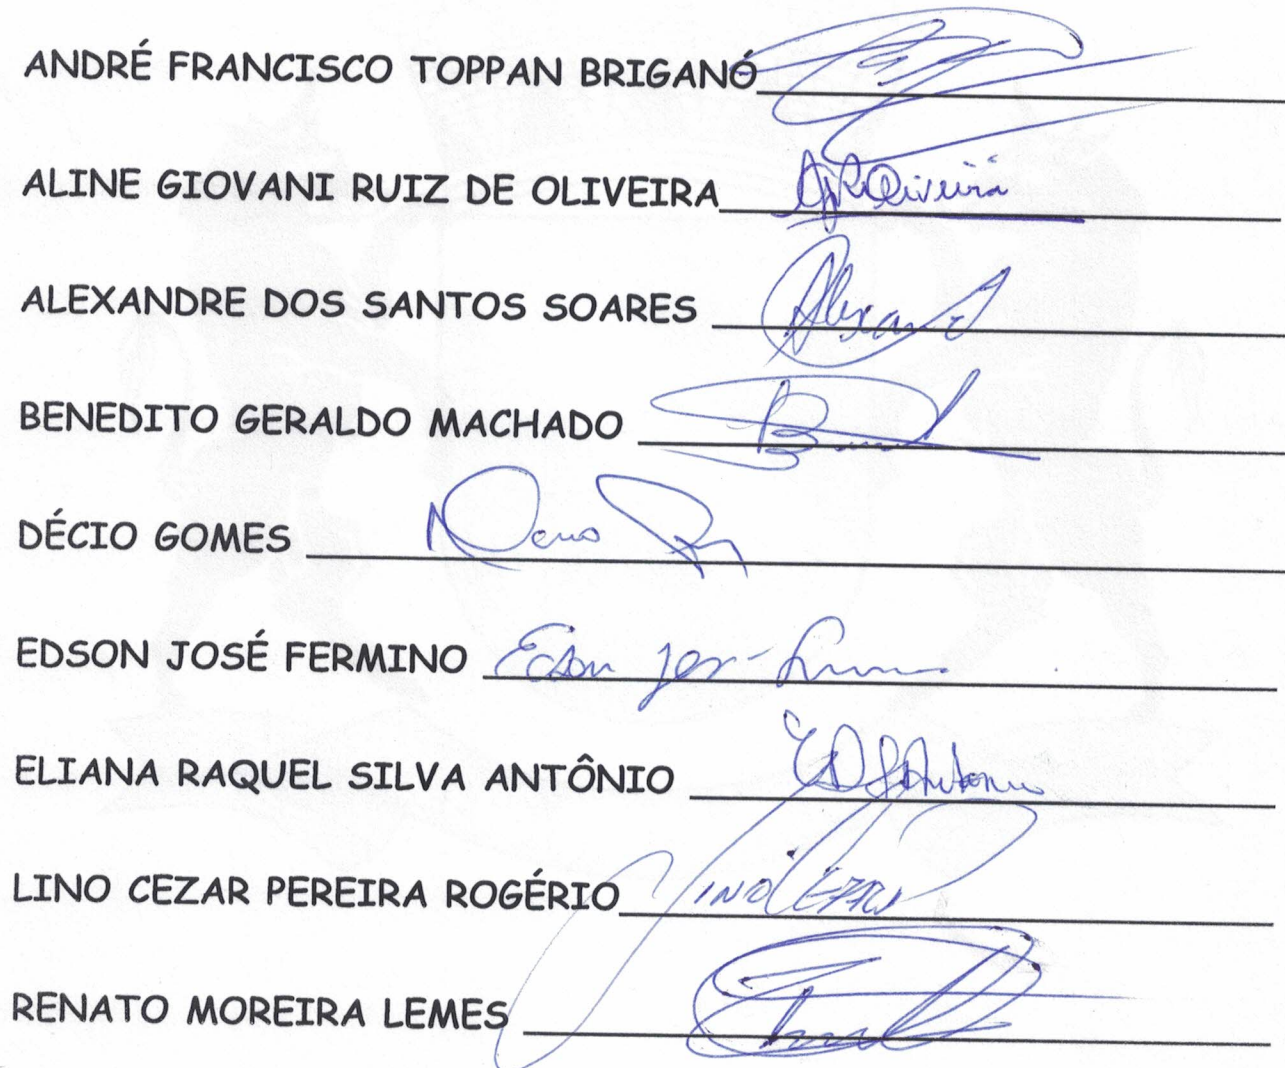 ANDRÉ FRANCISCO TOPPAN BRIGANÓ
ALINE GIOVANI RUIZ DE OLIVEIRA Oliveira
ALEXANDRE DOS SANTOS SOARES
BENEDITO GERALDO MACHADO
DÉCIO GOMES
EDSON JOSÉ FERMINO Edson
ELIANA RAQUEL SILVA ANTÔNIO
LINO CEZAR PEREIRA ROGÉRIO LINO CEZAR
RENATO MOREIRA LEMES